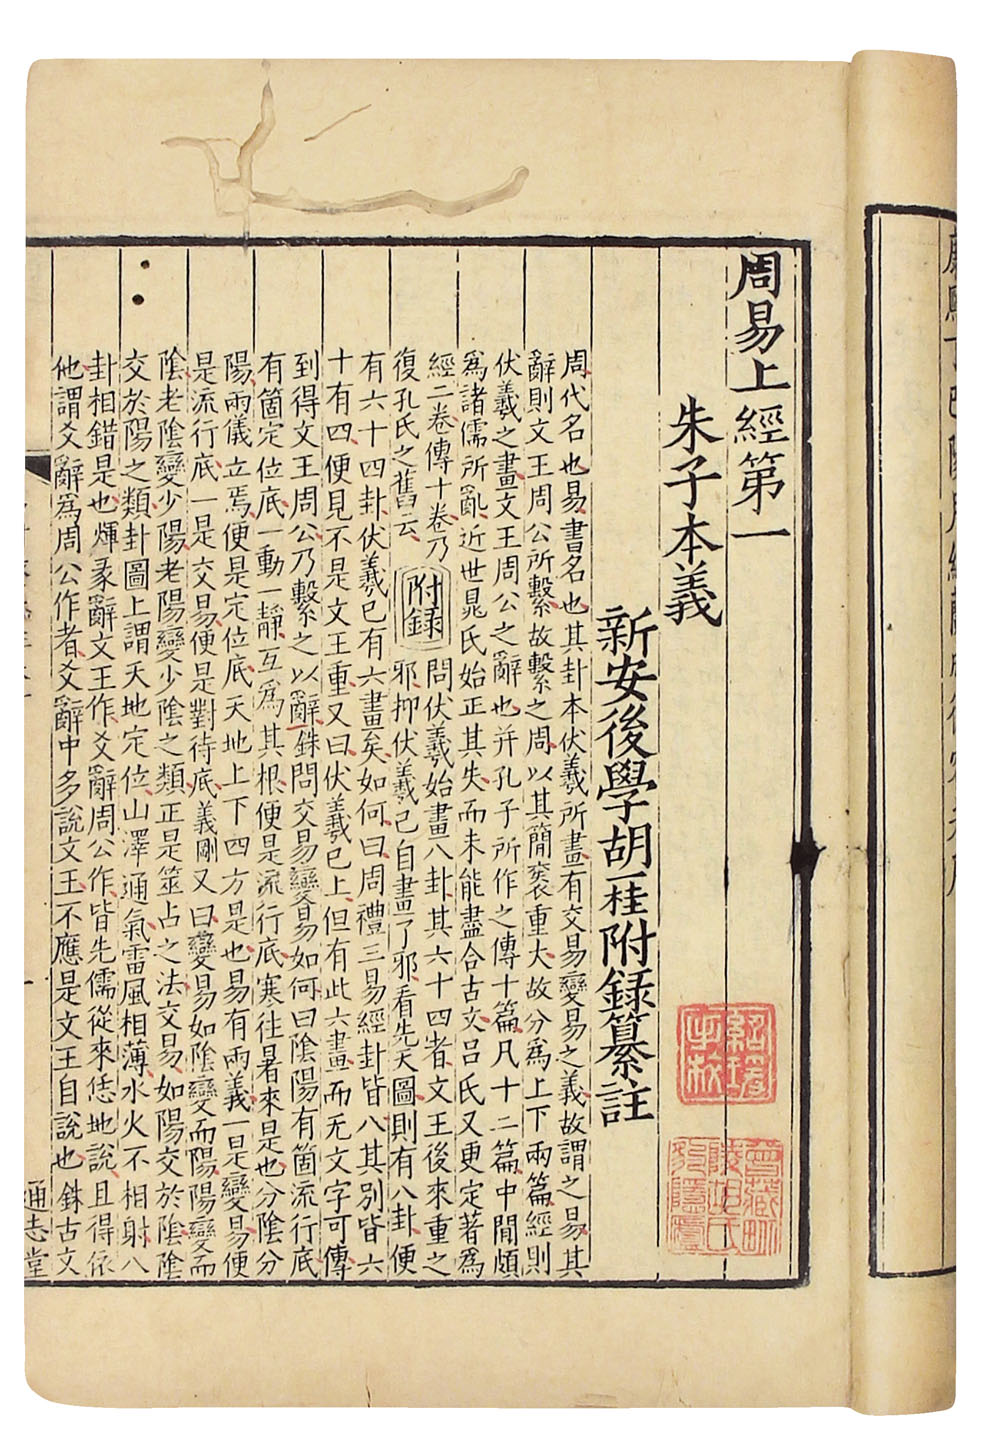 周易上經第一
朱子本義
新安後學胡一桂附録纂註
周代名也易書名也其卦本伏羲所畫有交易變易之義故謂之易其
辭則文王周公所繫故繫之周以其簡袠重大故分爲上下兩篇經則
伏羲之畫文王周公之辭也并孔子所作之傳十篇凡十二篇中閒頗
爲諸儒所亂近世晁氏始正其失而未能盡合古文吕氏又更定著爲
經二卷傳十卷乃
復孔氏之舊云
附録
問伏羲始畫八卦其六十四者文王後來重之
邪抑伏羲已自畫了邪看先天圖則有八卦便
有六十四卦伏羲已有六畫矣如何曰周禮三易經卦皆八其别皆六
十有四便見不是文王重又曰伏羲已上但有此六畫而无文字可傳
到得文王周公乃繫之以辭銖問交易變易如何曰陰陽有箇流行底
有箇定位底一動一靜互爲其根便是流行底寒往暑來是也分陰分
陽兩儀立焉便是定位底天地上下四方是也易有兩義一是變易便
是流行底一是交易便是對待底義剛又曰變易如陰變而陽陽變而
陰老陰變少陽老陽變少陰之類正是筮占之法交易如陽交於陰陰
交於陽之類卦圖上謂天地定位山澤通氣雷風相薄水火不相射八
卦相錯是也煇彖辭文王作爻辭周公作皆先儒從來恁地說且得依
他謂爻辭爲周公作者爻辭中多說文王不應是文王自說也銖古文
通志堂